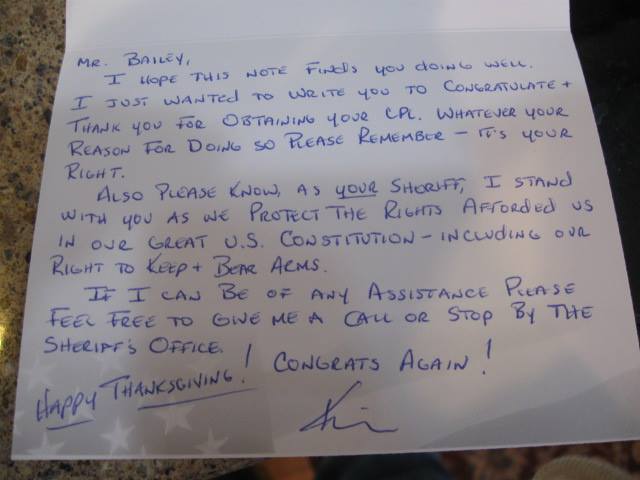 MR. BAILEY,
I HOPE THIS NOTE FINDS YOU DOING WELL.
I JUST WANTED TO WRITE YOU TO CONGRATULATE +
THANK YOU FOR OBTAINING YOUR CPL. WHATEVER YOUR
REASON FOR DOING SO PLEASE REMEMBER - IT'S YOUR
RIGHT.
ALSO PLEASE KNOW, AS YOUR SHERIFF, I STAND
WITH YOU AS WE PROTECT THE RIGHTS AFFORDED US
IN OUR GREAT U.S. CONSTITUTION - INCLUDING OUR
RIGHT TO KEEP + BEAR ARMS.
IF I CAN BE OF ANY ASSISTANCE PLEASE
FEEL FREE TO GIVE ME A CALL OR STOP BY THE
SHERIFF'S OFFICE.
HAPPY THANKSGIVING! CONGRATS AGAIN!